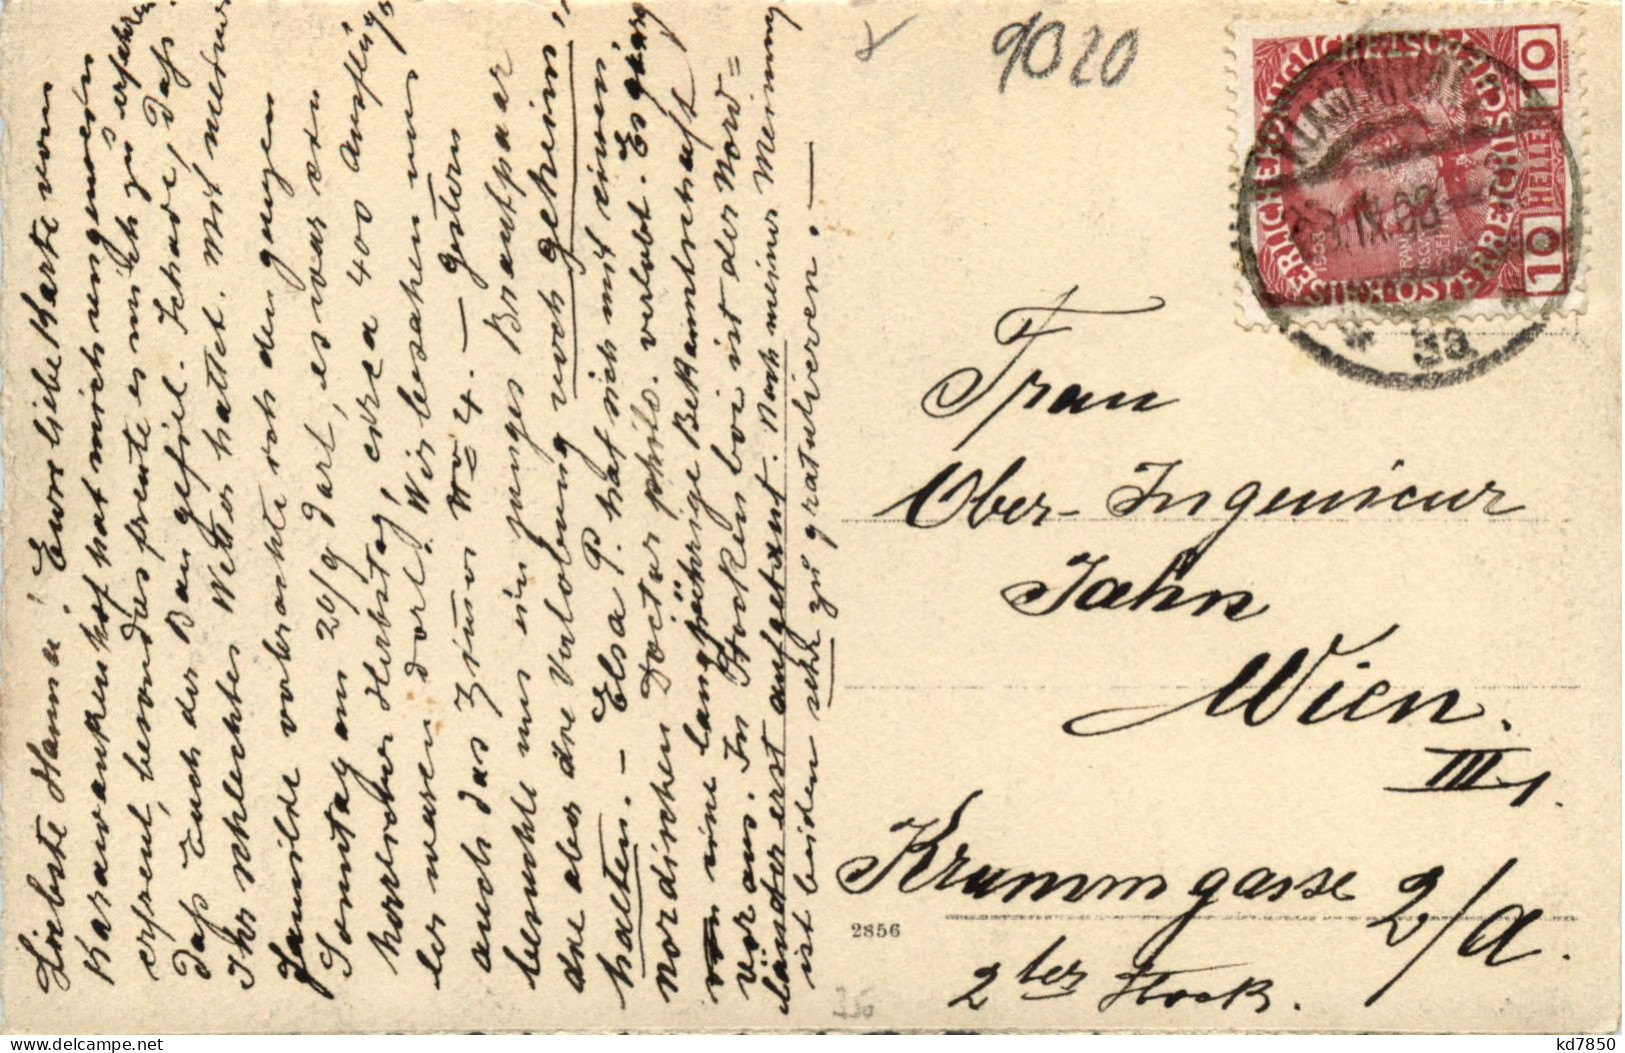 Liebste Hanna! Eure liebe Karte vom
Karawankenhof hat mich ungemein
erfreut, besonders freute es mich zu erfahren
daß Euch der Bau gefiel. Schade, daß
Ihr schlechtes Wetter hattet. Mit meiner
Familie verbrachte ich den ganzen
Sonntag am 20/9 dort, es war ein
herrlicher Herbsttag, circa 400 Ausflüg-
ler waren dort. Wir besahen uns
auch das Zimmer No 4. — Gestern
besuchte uns ein junges Brautpaar
die aber die Verlobung noch geheim
halten. — Elsa P. hat sich mit einem
nordischen Doctor philo. verlobt. Es ging
eine langjährige Bekanntschaft
voraus. In Stockerboi ist der Nord=
länder erst aufgetaut. Nach meiner Meinung
ist beiden sehr zu gratulieren. —
9020
KLAGENFURT
IX.08
3a
KAIS. KÖNIGL. ÖSTERREICHISCHE POST
10 HELLER 10
Frau
Ober-Ingenieur
Jahn
Wien.
III/1.
Krummgasse 2/a.
2ter Stock.
2856
kd7850